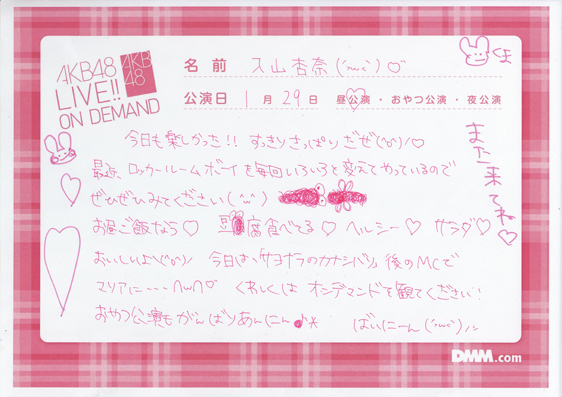 AKB48
LIVE!!
ON DEMAND
AKB
48
名 前 入山杏奈(´ω`)♡
くま
公演日 1月29日 昼公演・おやつ公演・夜公演
また来てね♡
今日も楽しかった!! すっきりさっぱりだぜ(^o^)/♡
最近 ロッカールームボーイを毎回いろいろと変えてやっているので
ぜひぜひみてください(^ω^)
お昼ご飯なら♡ 豆腐食べてる♡ ヘルシー♡ サラダ♡
おいしいよ\(^o^)/ 今日は、「サヨナラのカナシバリ」後のMCで
マリアに---∩ω∩♡ くわしくは オンデマンドを観てください!
おやつ公演もがんばりあんにん♪* ばいにーん(´ω`)ノシ
DMM.com